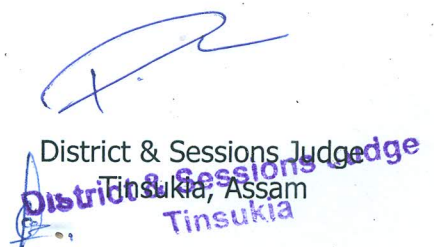 District & Sessions Judge
Tinsukia, Assam
District & Sessions Judge
Tinsukia